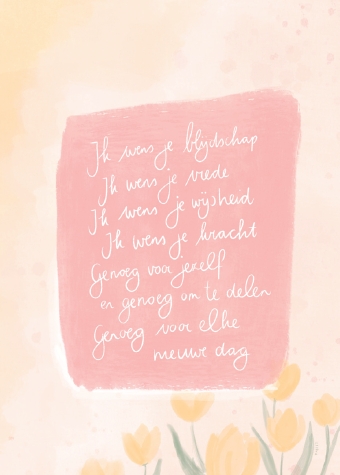 Ik wens je blijdschap
Ik wens je vrede
Ik wens je wijsheid
Ik wens je kracht
Genoeg voor jezelf
en genoeg om te delen
Genoeg voor elke
nieuwe dag